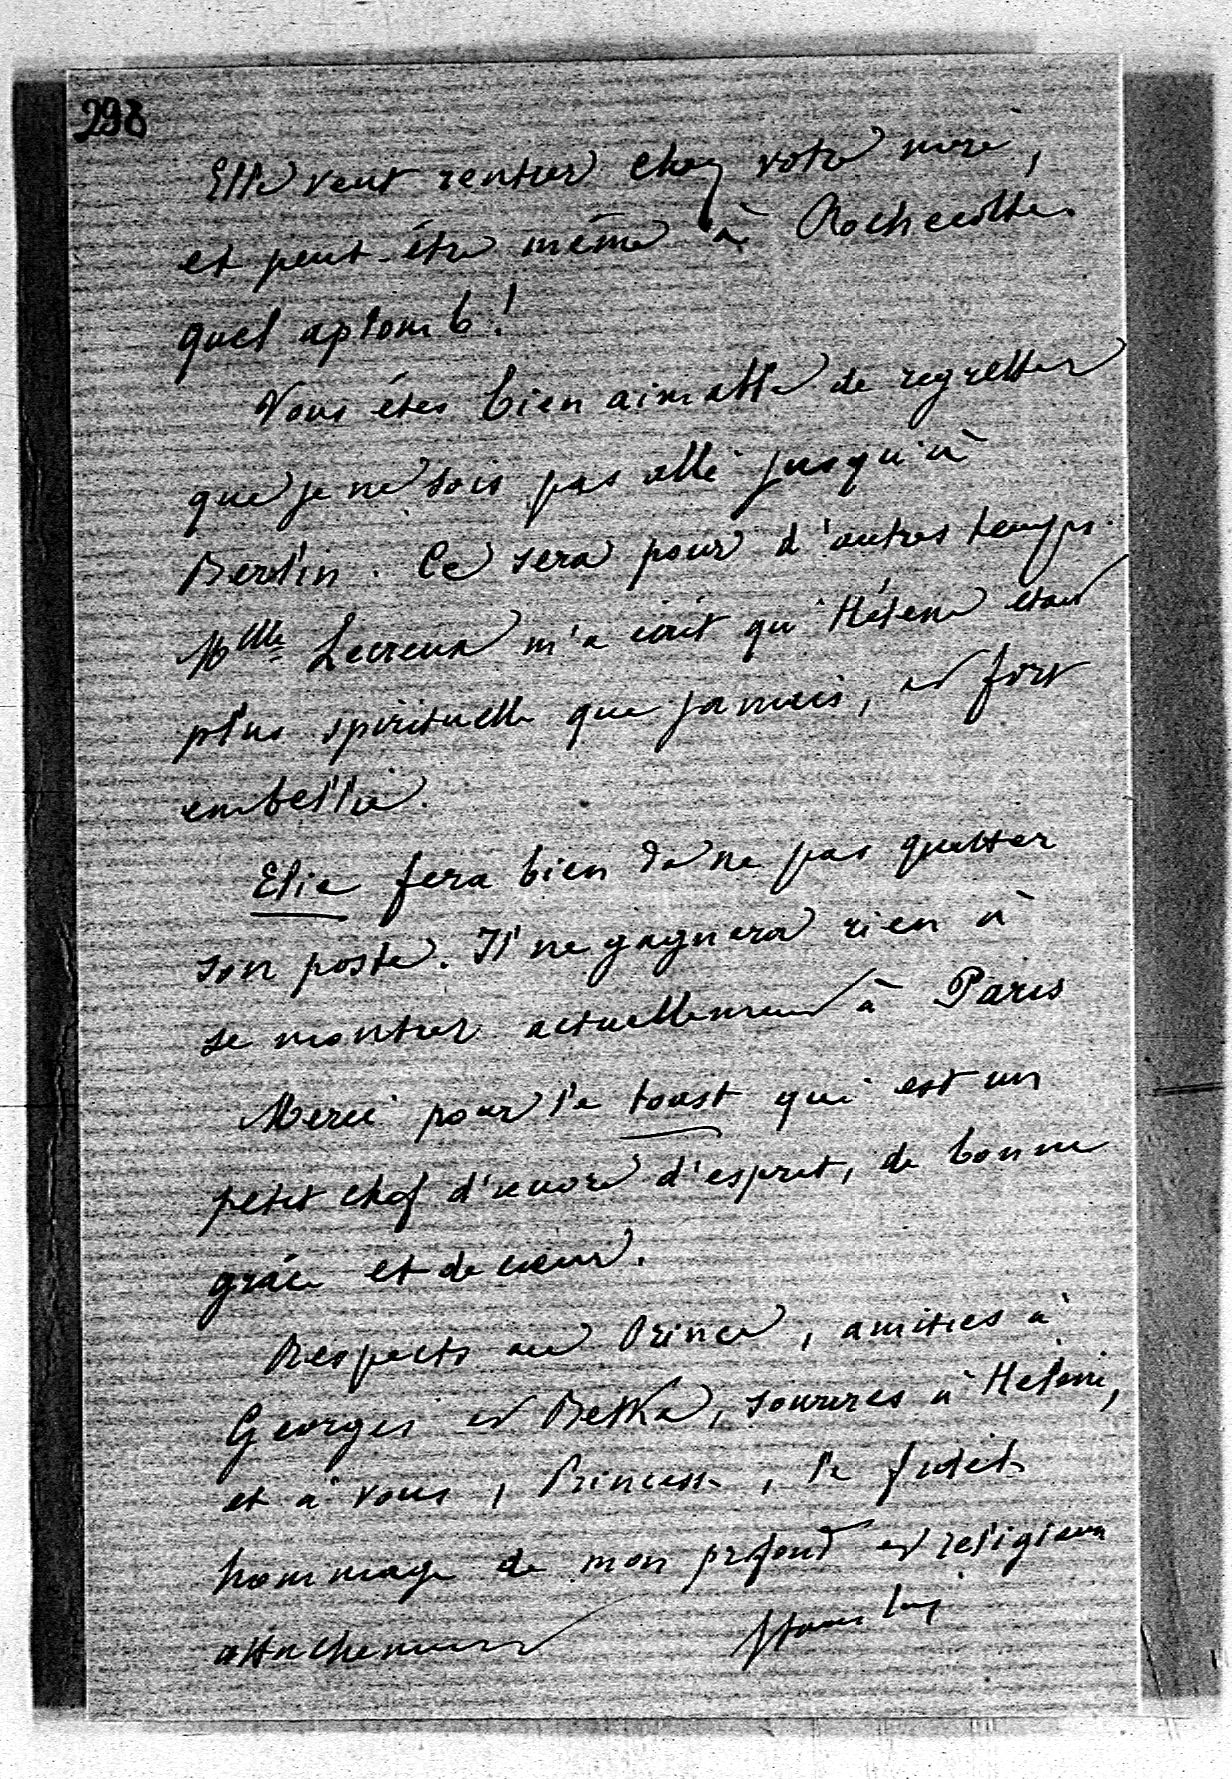 298
Elle veut rentrer chez votre mère,
et peut-être même à Rochecotte.
quel aplomb!
Vous êtes bien aimable de regretter
que je ne sois pas allé jusqu'à
Berlin. Ce sera pour d'autres temps.
Mlle Lecreux m'a écrit qu'Hélène était
plus spirituelle que jamais, et fort
embellie.
Elie fera bien de ne pas quitter
son poste. Il ne gagnera rien à
se montrer actuellement à Paris
Merci pour le toast qui est un
petit chef d'œuvre d'esprit, de bonne
grâce et de cœur.
Respects au Prince, amitiés à
Georges et Betka, sourires à Hélène,
et à vous, Princesse, le
hommage de mon profond et religieux
attachement